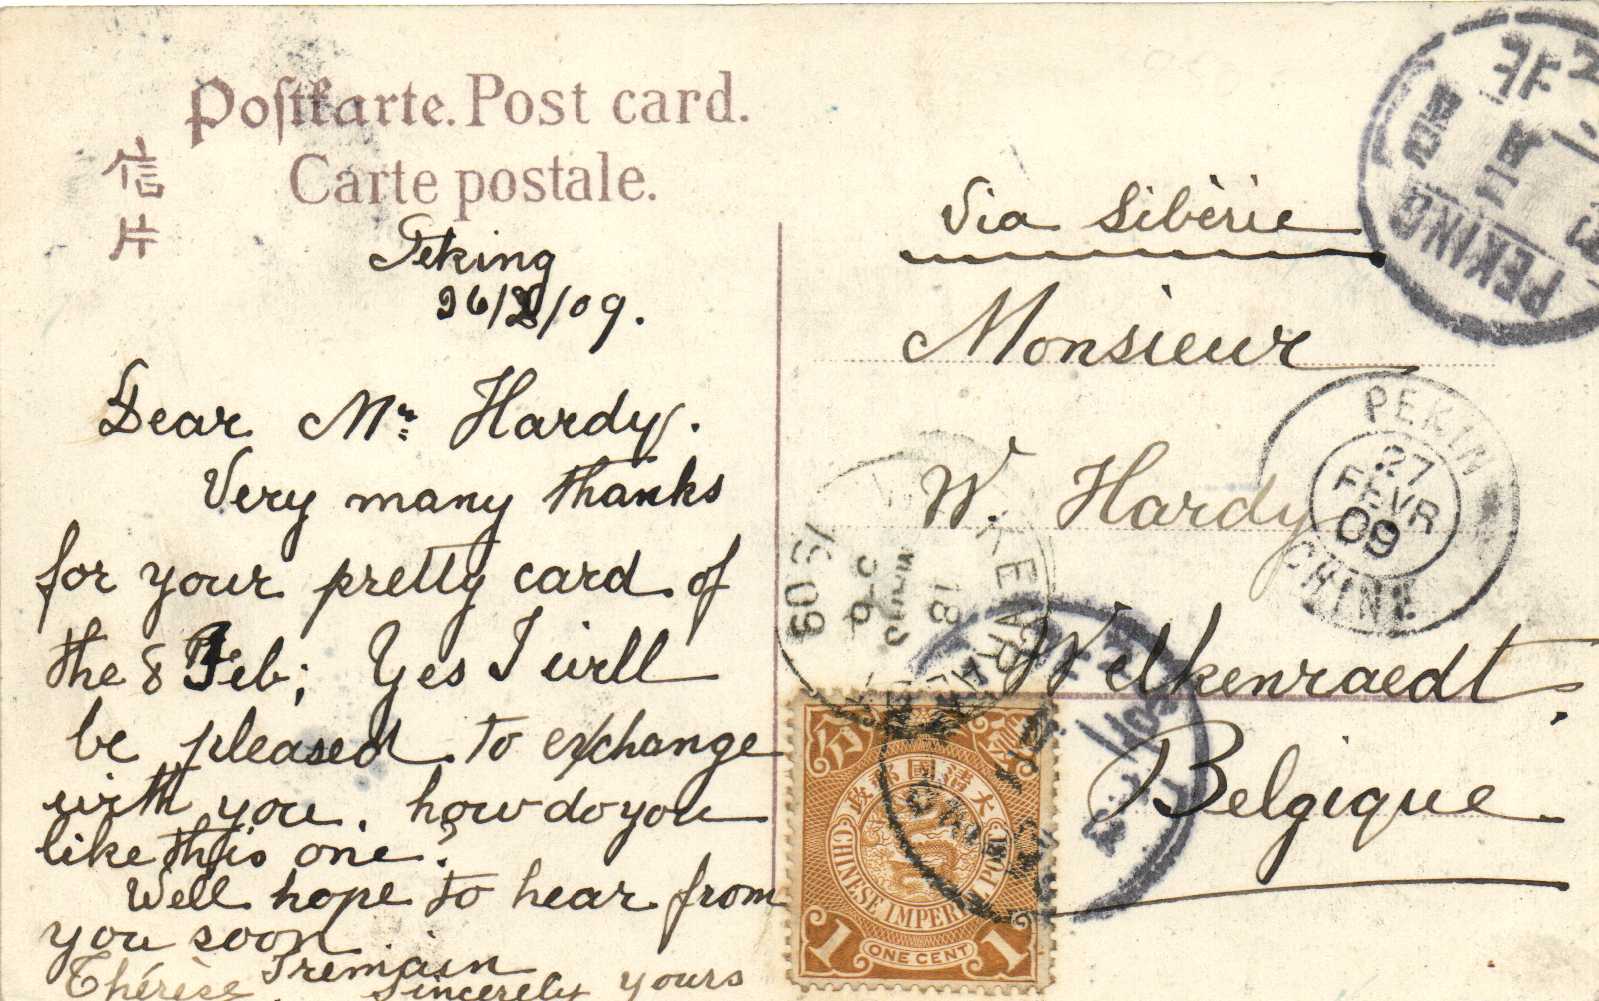 Postkarte. Post card.
Carte postale.
信片
Peking
26/2/09.
Dear Mr. Hardy.
Very many thanks
for your pretty card of
the 8 Feb; Yes I will
be pleased to exchange
with you. how do you
like this one?
Well hope to hear from
you soon
I remain
Sincerely yours
Thérèse
Via Sibèrie
Monsieur
W. Hardy
Welkenraedt
Belgique
PEKING
PEKIN
27
FEVR
09
CHINE
18
09
大清國郵政
CHINESE IMPERIAL POST
1 ONE CENT 1